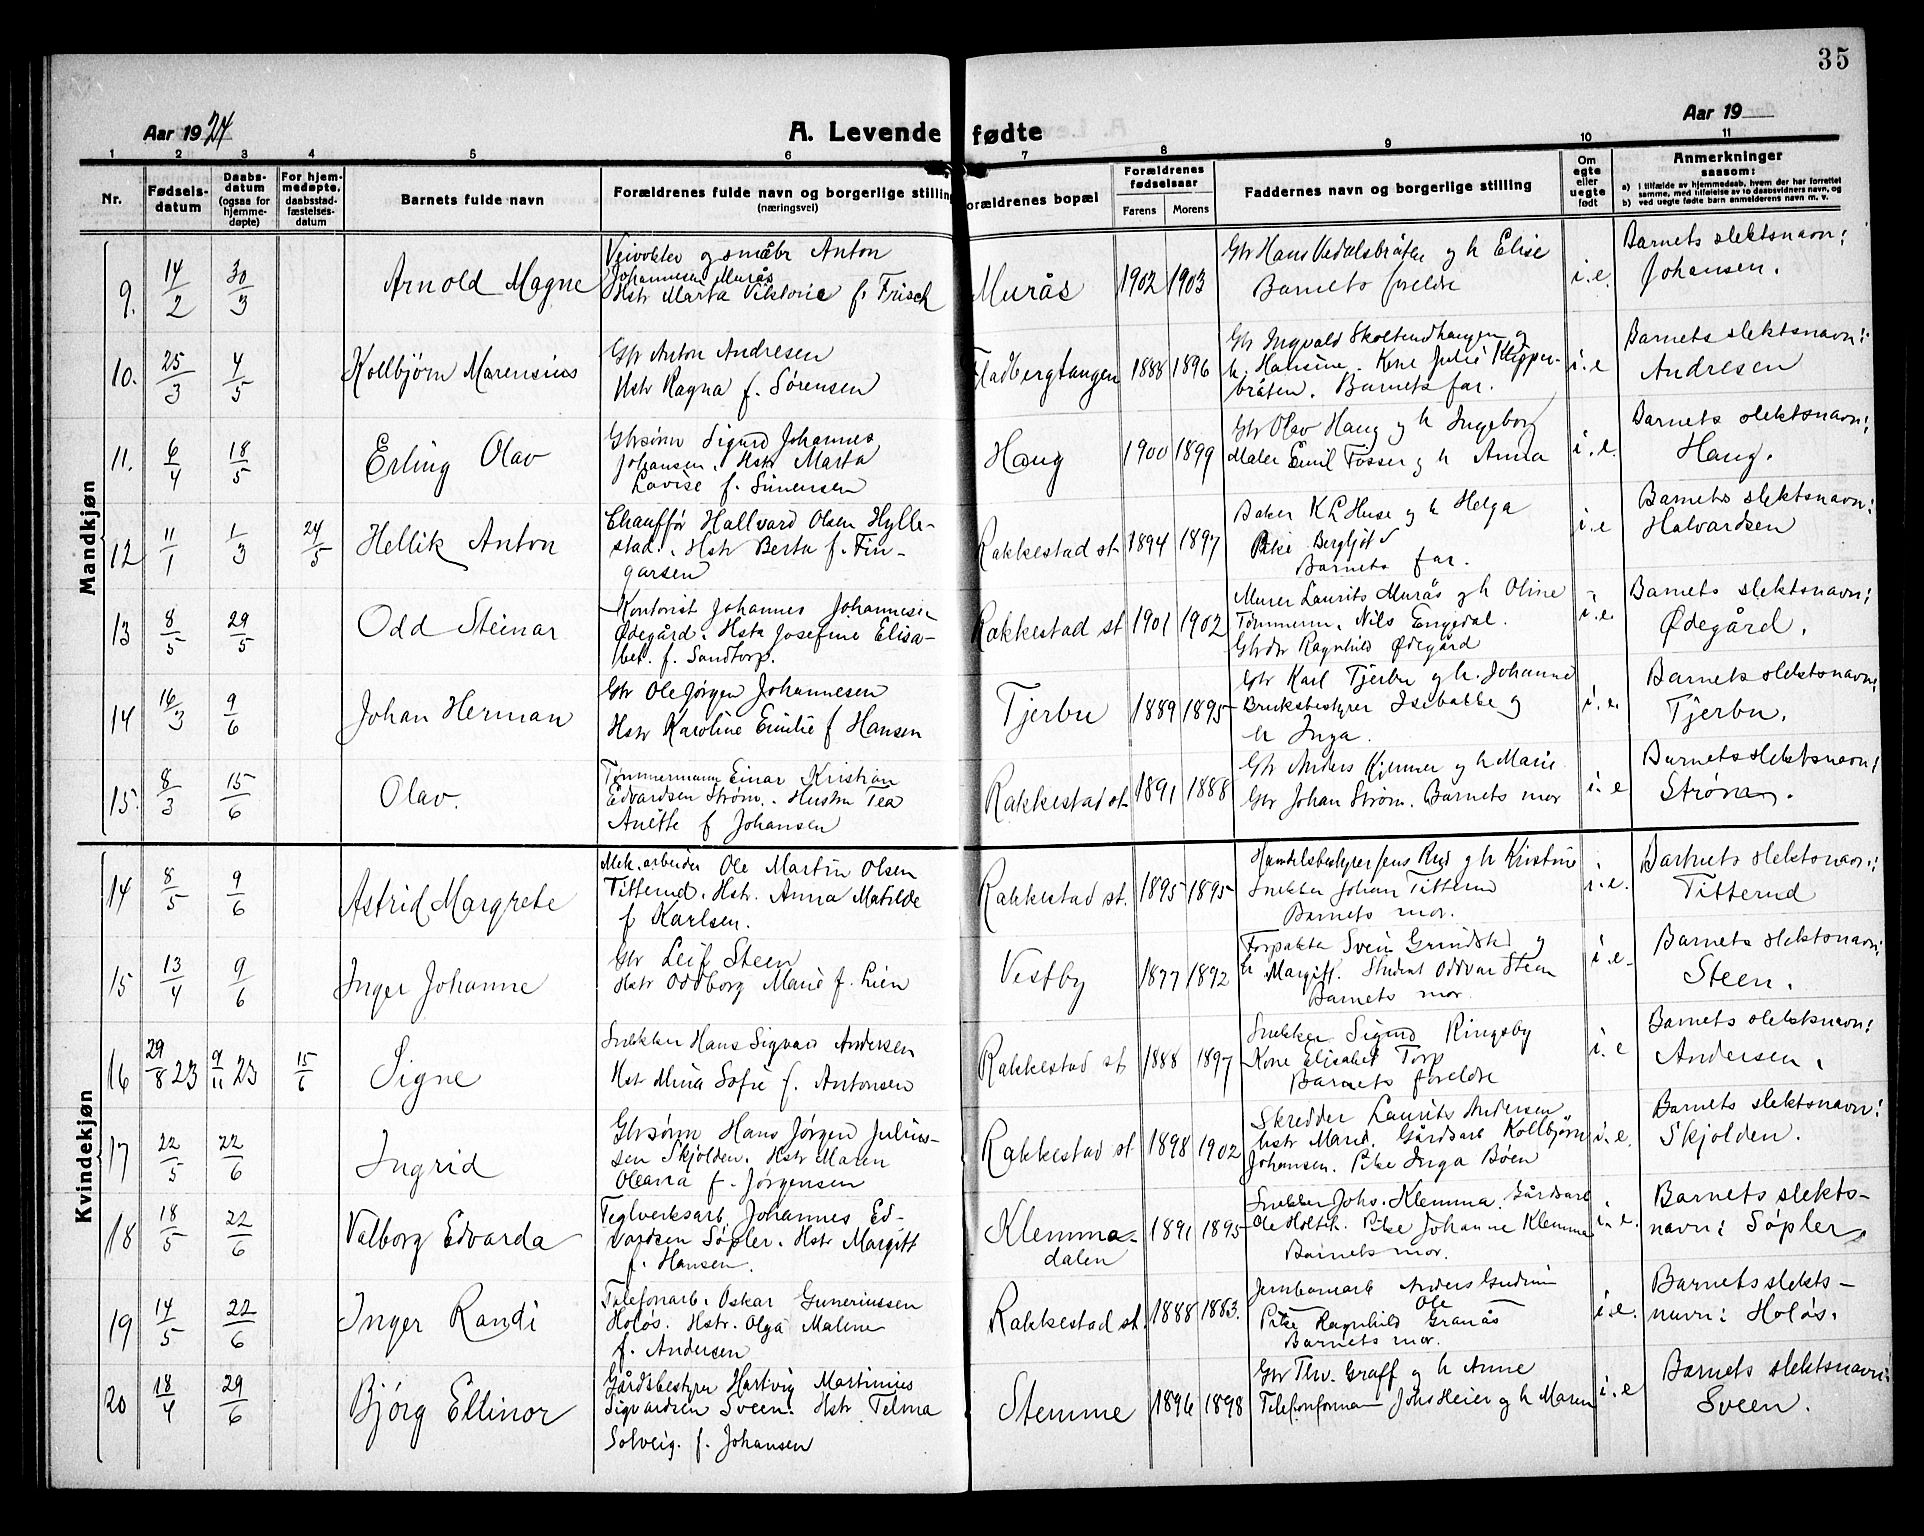 35
Aar 1924
A. Levende fødte
Aar 19
1 2 3 4 5 6 7 8 9 10 11
Nr.
Fødsels-
datum
Daabs-
datum
(ogsaa for
hjemme-
døpte)
For hjem-
medøpte,
daabsstad-
fæstelses-
datum
Barnets fulde navn
Forældrenes fulde navn og borgerlige stilling
(næringsvei)
orældrenes bopæl
Forældrenes
fødselsaar
Farens Morens
Faddernes navn og borgerlige stilling
Om
egte
eller
uegte
født
Anmerkninger
saasom:
a) i tilfælde av hjemmedaab, hvem der har forrettet
samme, med tilføielse av to daabsvidners navn, og
b) ved uegte fødte barn anmelderens navn m. v.
Mandkjøn
9. 14/2 30/3
Arnold Magne
Veivokter og småbr Anton
Johannesen Murås
Hstr Marta Viktorie f. Frisch
Murås
1902 1903
Gbr Hans Vedalsbråten og h Elise
Barnets foreldre
i.e.
Barnets slektsnavn:
Johansen.
10. 25/3 4/5
Kollbjørn Marensius
Gbr Anton Andresen
Hstr Ragna f. Sørensen
Fladbergtangen
1888 1896
Gbr Ingvald Skoltundhaugen og
h. Hansine. Kone Julie Klypper-
bråten. Barnets far.
i.e
Barnets slektsnavn:
Andresen
11. 6/4 18/5
Erling Olav
Gbrsønn Sigurd Johannes
Johansen. Hstr Marta
Lovise f. Simensen
Haug
1900 1899
Gbr Olav Haug og h Ingeborg
Maler Emil Fosser og h Anna
i.e.
Barnets slektsnavn:
Haug.
12 11/1 1/3 24/5
Hellik Anton
Chauffør Hallvard Olsen Hylle-
stad. Hstr Berta f. Fin-
garsen
Rakkestad st
1894 1897
Baker K L Huse og h Helga
Pike Bergljot
Barnets far.
i.e
Barnets slektsnavn:
Halvardsen
13 8/5 29/5
Odd Steinar
Kontorist Johannes Johannesen
Ødegård. Hstr Josefine Elisa-
bet. f. Sandtorp.
Rakkestad st
1901 1902
Murer Laurits Murås og h Oline
Tømmerm. Nils Engedal.
Gbrdtr Ragnhild Ødegård
i.e.
Barnets slektsnavn:
Ødegård.
14 16/3 9/6
Johan Herman
Gbr Ole Jørgen Johannesen
Hstr Karoline Emilie f Hansen
Tjerbu
1889 1895
Gbr Karl Tjerbu og h. Johanne
Bruksbestyrer Isebakke og
h Inga.
i.e.
Barnets slektsnavn:
Tjerbu.
15. 8/3 15/6
Olav.
Tømmermann Einar Kristian
Edvardsen Strøm. Hustru Tea
Anette f Johansen
Rakkestad st.
1891 1888
Gbr Anders Kjenner og h Marie
Gbr Johan Strøm. Barnets mor
i.e
Barnets slektsnavn:
Strøm.
Kvindekjøn
14 8/5 9/6
Astrid Margrete
Mek. arbeider Ole Martin Olsen
Titterud. Hstr. Anna Matilde
f Karlsen.
Rakkestad st.
1895 1895
Handelsbestyrer Jens Rud og h Kristine
Snekker Johan Titterud
Barnets mor.
i.e.
Barnets slektsnavn:
Titterud
15 13/4 9/6
Inger Johanne
Gbr Leif Steen
Hstr Oddborg Marie f. Lien
Vestby
1877 1892
Forpakter Svein Grindstad og
h Margitt. Student Oddvar Steen
Barnets mor.
i.e.
Barnets slektsnavn:
Steen.
16 29/8 23 9/11 23 15/6
Signe
Snekker Hans Sigvart Andersen
Hstr Mina Sofie f. Antonsen
Rakkestad st
1888 1897
Snekker Sigurd Ringsby
Kone Elisabet Torp
Barnets foreldre
i.e
Barnets slektsnavn:
Andersen.
17 22/5 22/6
Ingrid
Gbrsønn Hans Jørgen Julius-
sen Skjolden. Hstr Maren
Oleana f. Jørgensen
Rakkestad st
1898 1902
Skredder Laurits Andersen
hstr Marie. Gårdsarb Kollbjørn
Johansen. Pike Inga Bøen
i.e.
Barnets slektsnavn:
Skjolden.
18 18/5 22/6
Valborg Edvarda
Teglverksarb. Johannes Ed-
vardsen Søpler. Hstr Margitt
f. Hansen.
Klemma-
dalen
1891 1895
Snekker Johs. Klemma. Gårdsarb
Ole Holtet. Pike Johanne Klemma
Barnets mor.
i.e.
Barnets slekts-
navn: Søpler.
19 14/5 22/6
Inger Randi
Telefonarb. Oskar Guneriussen
Holøs. Hstr. Olga Malene
f. Andersen
Rakkestad st.
1888 1883.
Jernbanearb Anders Gudim
Ole
Pike Ragnhild Granås
Barnets mor.
i.e.
Barnets slekts-
navn: Holøs.
20 18/4 29/6
Bjørg Ellinor
Gårdsbestyrer Hartvig Martinius
Sigvardsen Sveen. Hstr Telma
Solveig. f. Johansen
Stemme
1896 1898
Gbr Thv. Graff og h Anne
Telefonforman Johs Heier og h Maren
i.e
Barnets slektsnavn:
Sveen.